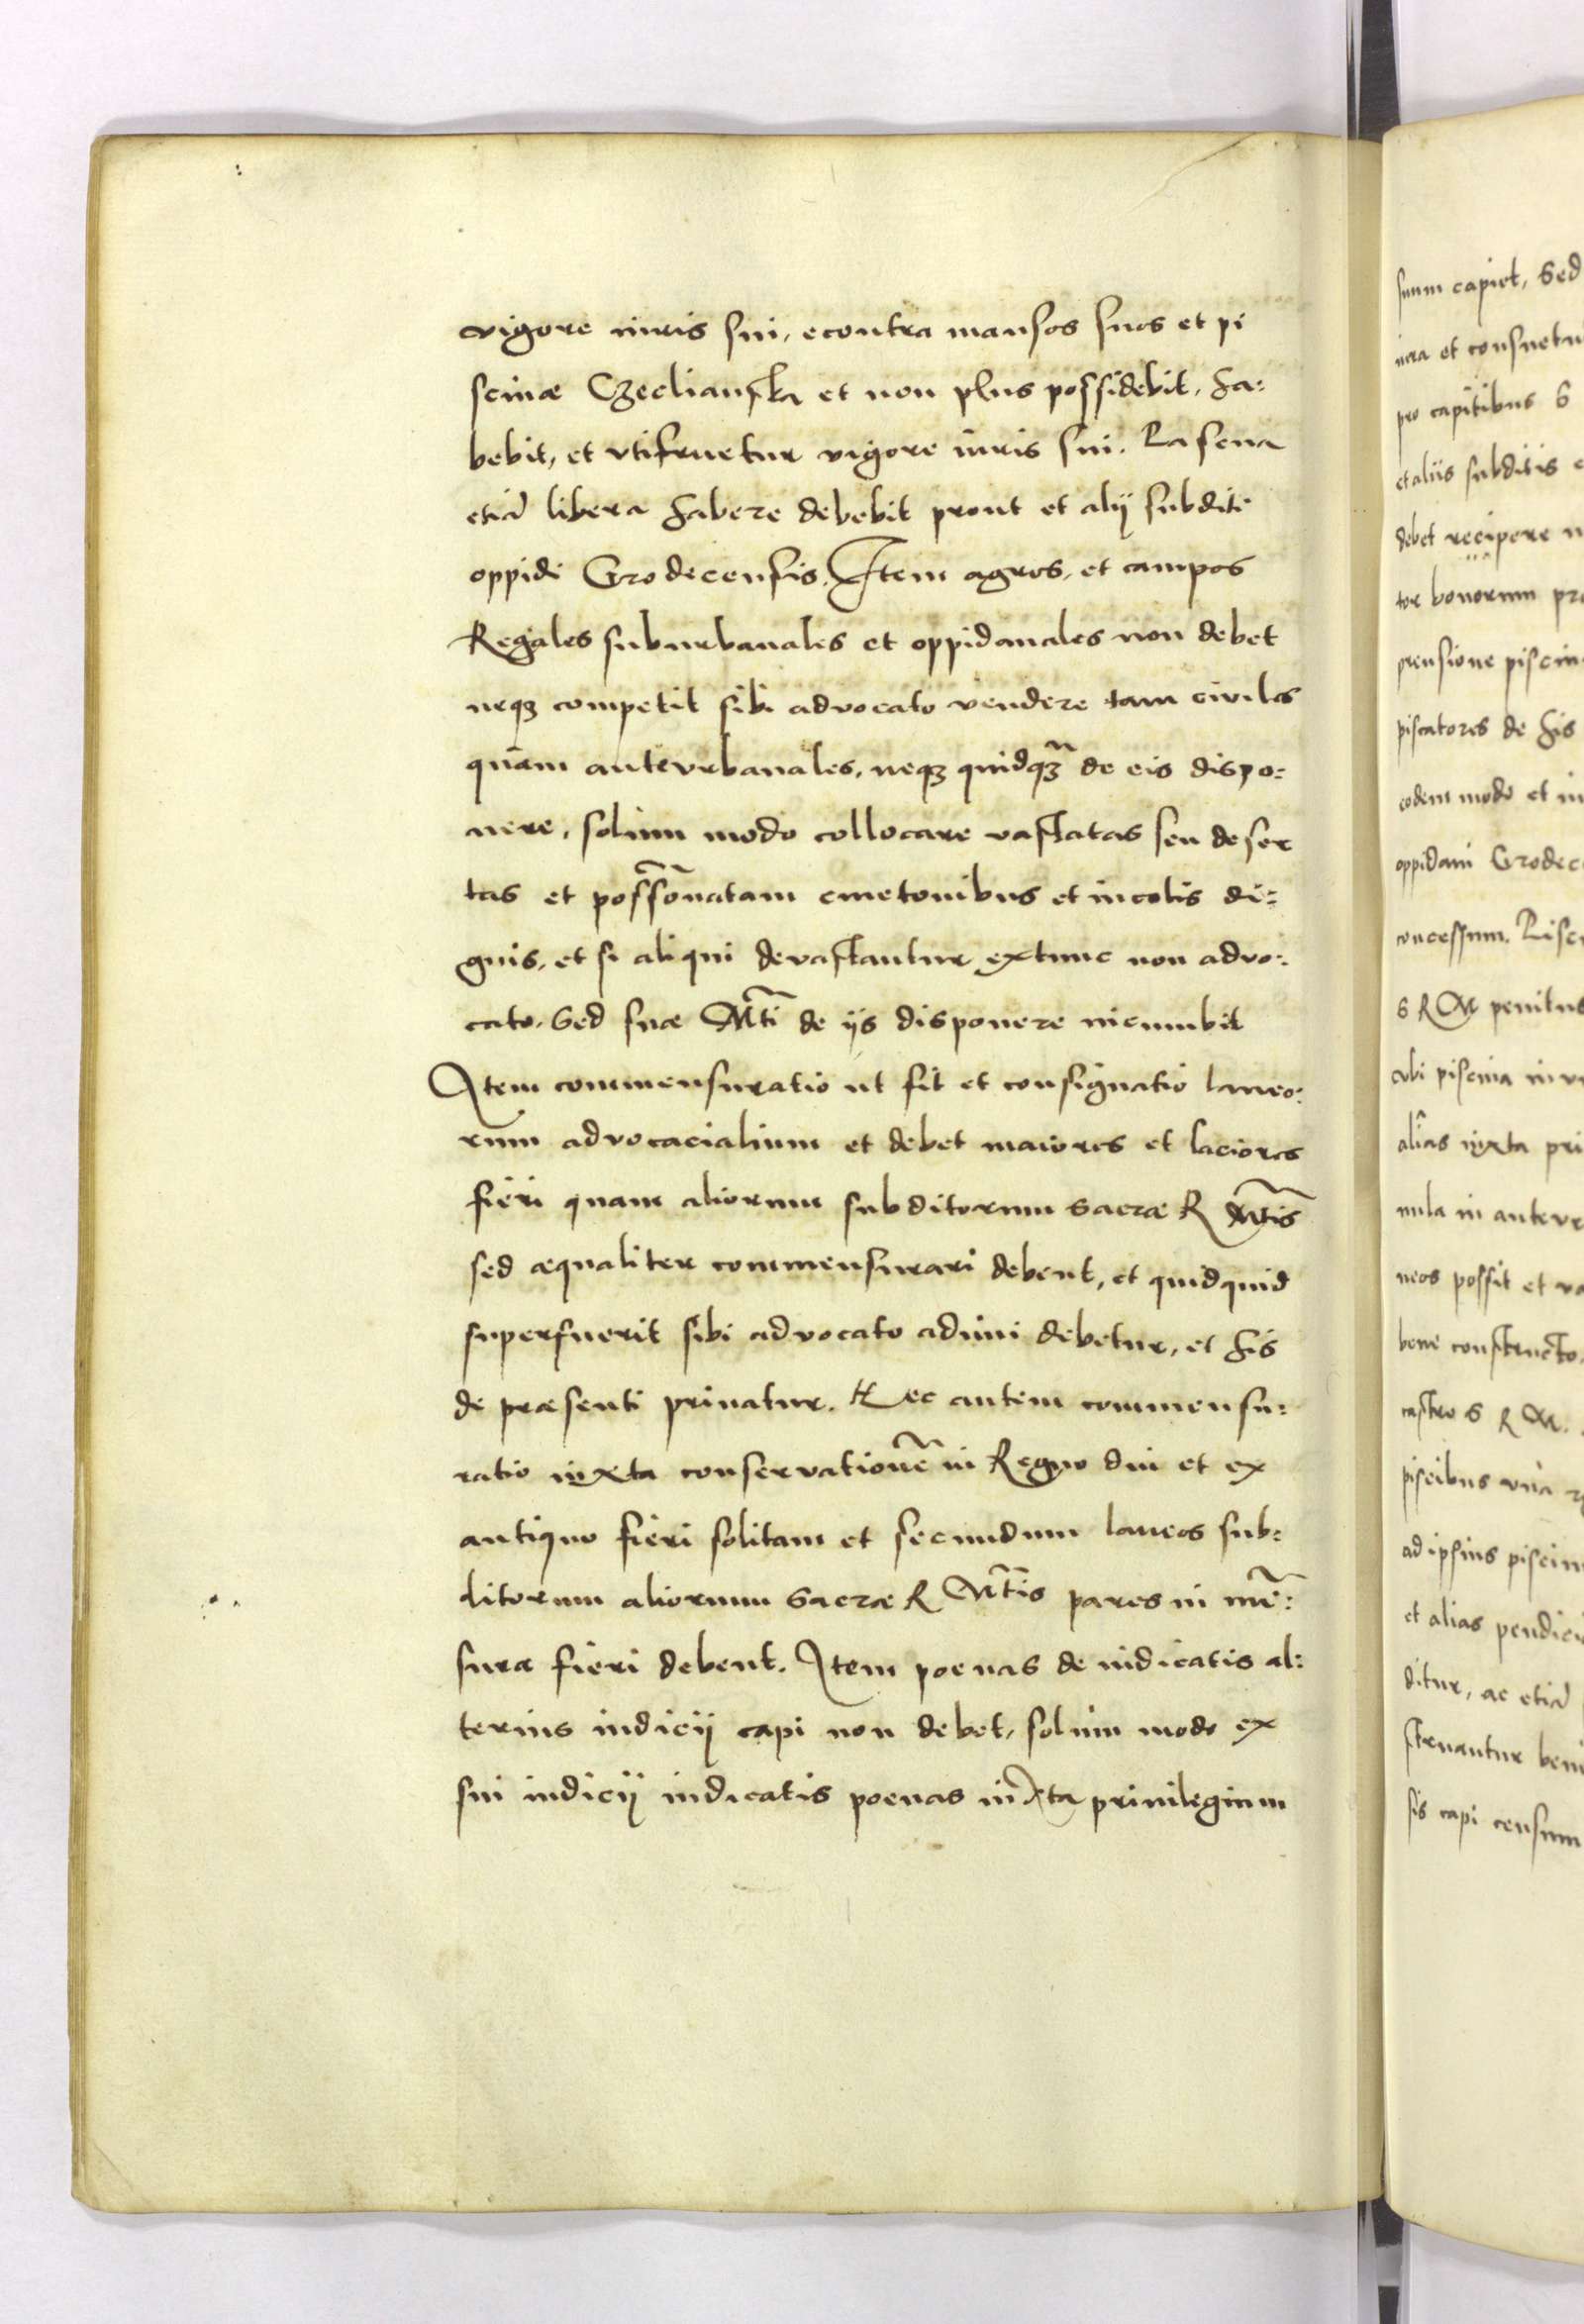 vigore iuris sui, econtra mansos suos et pi
scinæ Czeclianska et non plus possidebit, ha:
bebit, et vtifruetur vigore iuris sui. Lasena
etiā libera habere debebit prout et alij subditi
oppidi Grodecensis. Item agros, et campos
Regales suburbanales et oppidanales non debet
neqȝ competit sibi advocato vendere tam civiles
quàm antevrbanales, neqȝ quidqȝ̃ de eis dispo:
nere, solum modo collocare vastatas seu deser
tas et poss̃onatam cmetonibus et incolis di:
gnis, et si aliqui devastantur extunc non advo:
cato. Sed suæ Mti̅ de ijs disponere incumbit
Item commensuratio ut fit et consignatio laneo:
rum advocacialium et debet maiores et laciores
fieri quam aliorum subditorum Sacræ R Mt̃is
sed æqualiter commensurari debent, et quidquid
superfuerit sibi advocato adimi debetur, et his
de præsenti priuatur. Hec autem commensu:
ratio iuxta conservationẽ in Regno diu et ex
antiquo fieri solitam et secundum laneos sub:
ditorum aliorum Sacræ R Mt̃is pares in mẽ:
sura fieri debent. Item poenas de iudicatis al:
terius iudicij capi non debet, solum modo ex
sui iudicij iudicatis poenas iuxta priuilegium
suum capiet, Sed
et consuetu
pro capitibus S
et aliis subditis
debet recipere
tor bonorum
prensione piscin
piscatores de his
eodem modo et in
oppidani Grodec
concessum.
S R M penitus
vbi piscina
alias iuxta pri
nula in antevr
neos possit et va
bene constructo
castro S R M.
piscibus
ad ipsius piscin
et alias pendici
ditur, ac etiā
struantur
sis capi censum